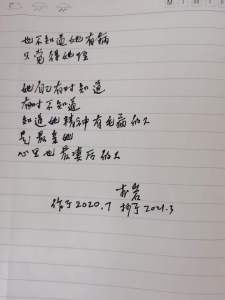 也不知道她有病
只当得她怪
她自己有时知道
有时不知道
知道她精神有毛病的人
是最喜她
心里也最凄厉的人
赤岩
作于2020.7 抄于2021.3